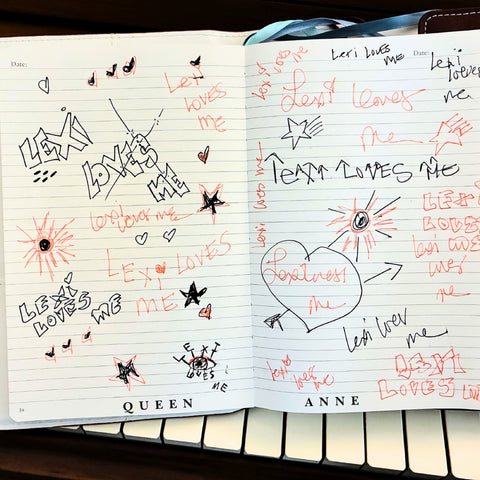 Date:
Lexi
Loves
Me
LEXI
LOVES
ME
Lexi loves me
LEXI LOVES
ME
LEXI
LOVES ME
LEXI
LOVES
ME
34
QUEEN
Date:
Lexi
loves
me
Lexi Loves
me
Lexi
loves
me
Lexi loves
me
Lexi LOVES me
Lexi loves me
LEXI
LOVES
me
me
Lexi lover
me
lexi
loves
me
LEXI
LOVES
ANNE